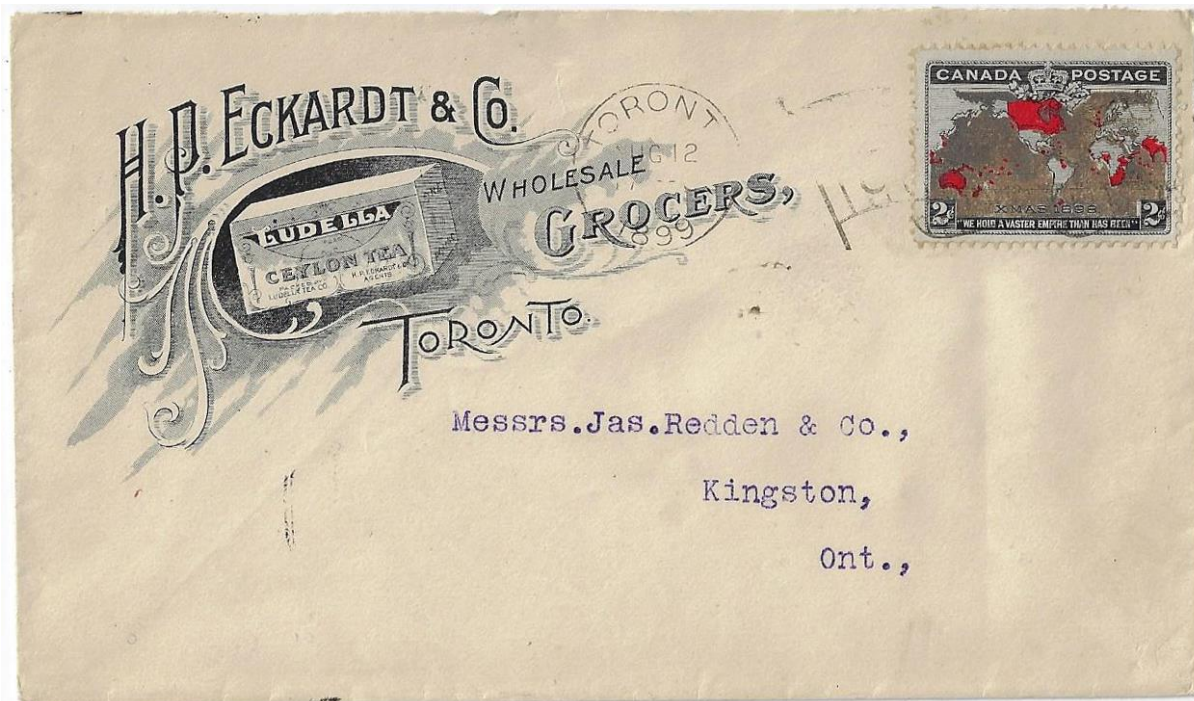 H. P. ECKARDT & Co.
WHOLESALE
GROCERS,
LUDELLA
CEYLON TEA
LUDELLA TEA CO.
H. P. ECKARDT & CO
AGENTS
TORONTO.
TORONT
UG 12
899
CANADA POSTAGE
XMAS 1898
2c 2c
"WE HOLD A VASTER EMPIRE THAN HAS BEEN"
Messrs.Jas.Redden & Co.,
Kingston,
Ont.,